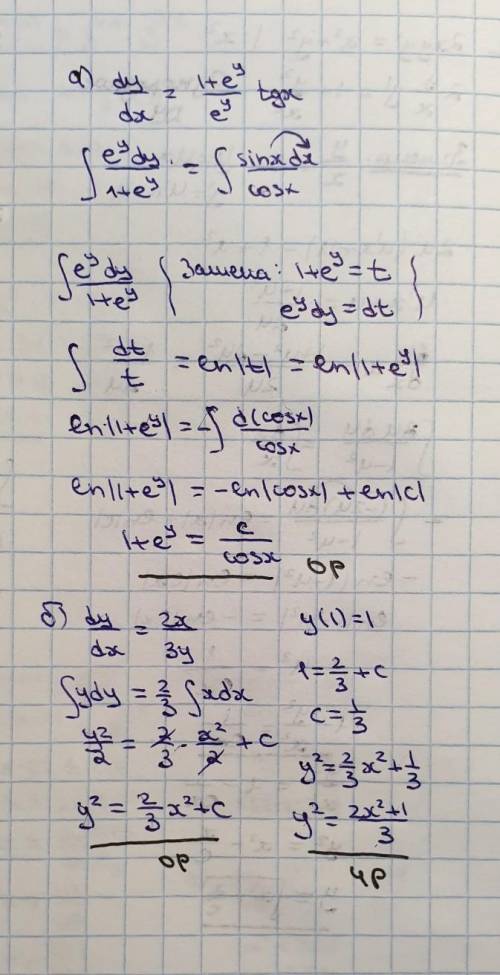 а) dy/dx = (1+e^y)/e^y tgx
∫ e^y dy/(1+e^y) = ∫ sinx dx/cosx
∫ e^y dy/(1+e^y) { Замена: 1+e^y = t
e^y dy = dt }
∫ dt/t = ln|t| = ln|1+e^y|
ln|1+e^y| = -∫ d(cosx)/cosx
ln|1+e^y| = -ln|cosx| + ln|c|
1+e^y = c/cosx
ОР
б) dy/dx = 2x/3y
∫ydy = 2/3 ∫xdx
y²/2 = 2/3 · x²/2 + c
y² = 2/3 x² + c
ОР
y(1)=1
1 = 2/3 + c
c = 1/3
y² = 2/3 x² + 1/3
y² = (2x²+1)/3
ЧР